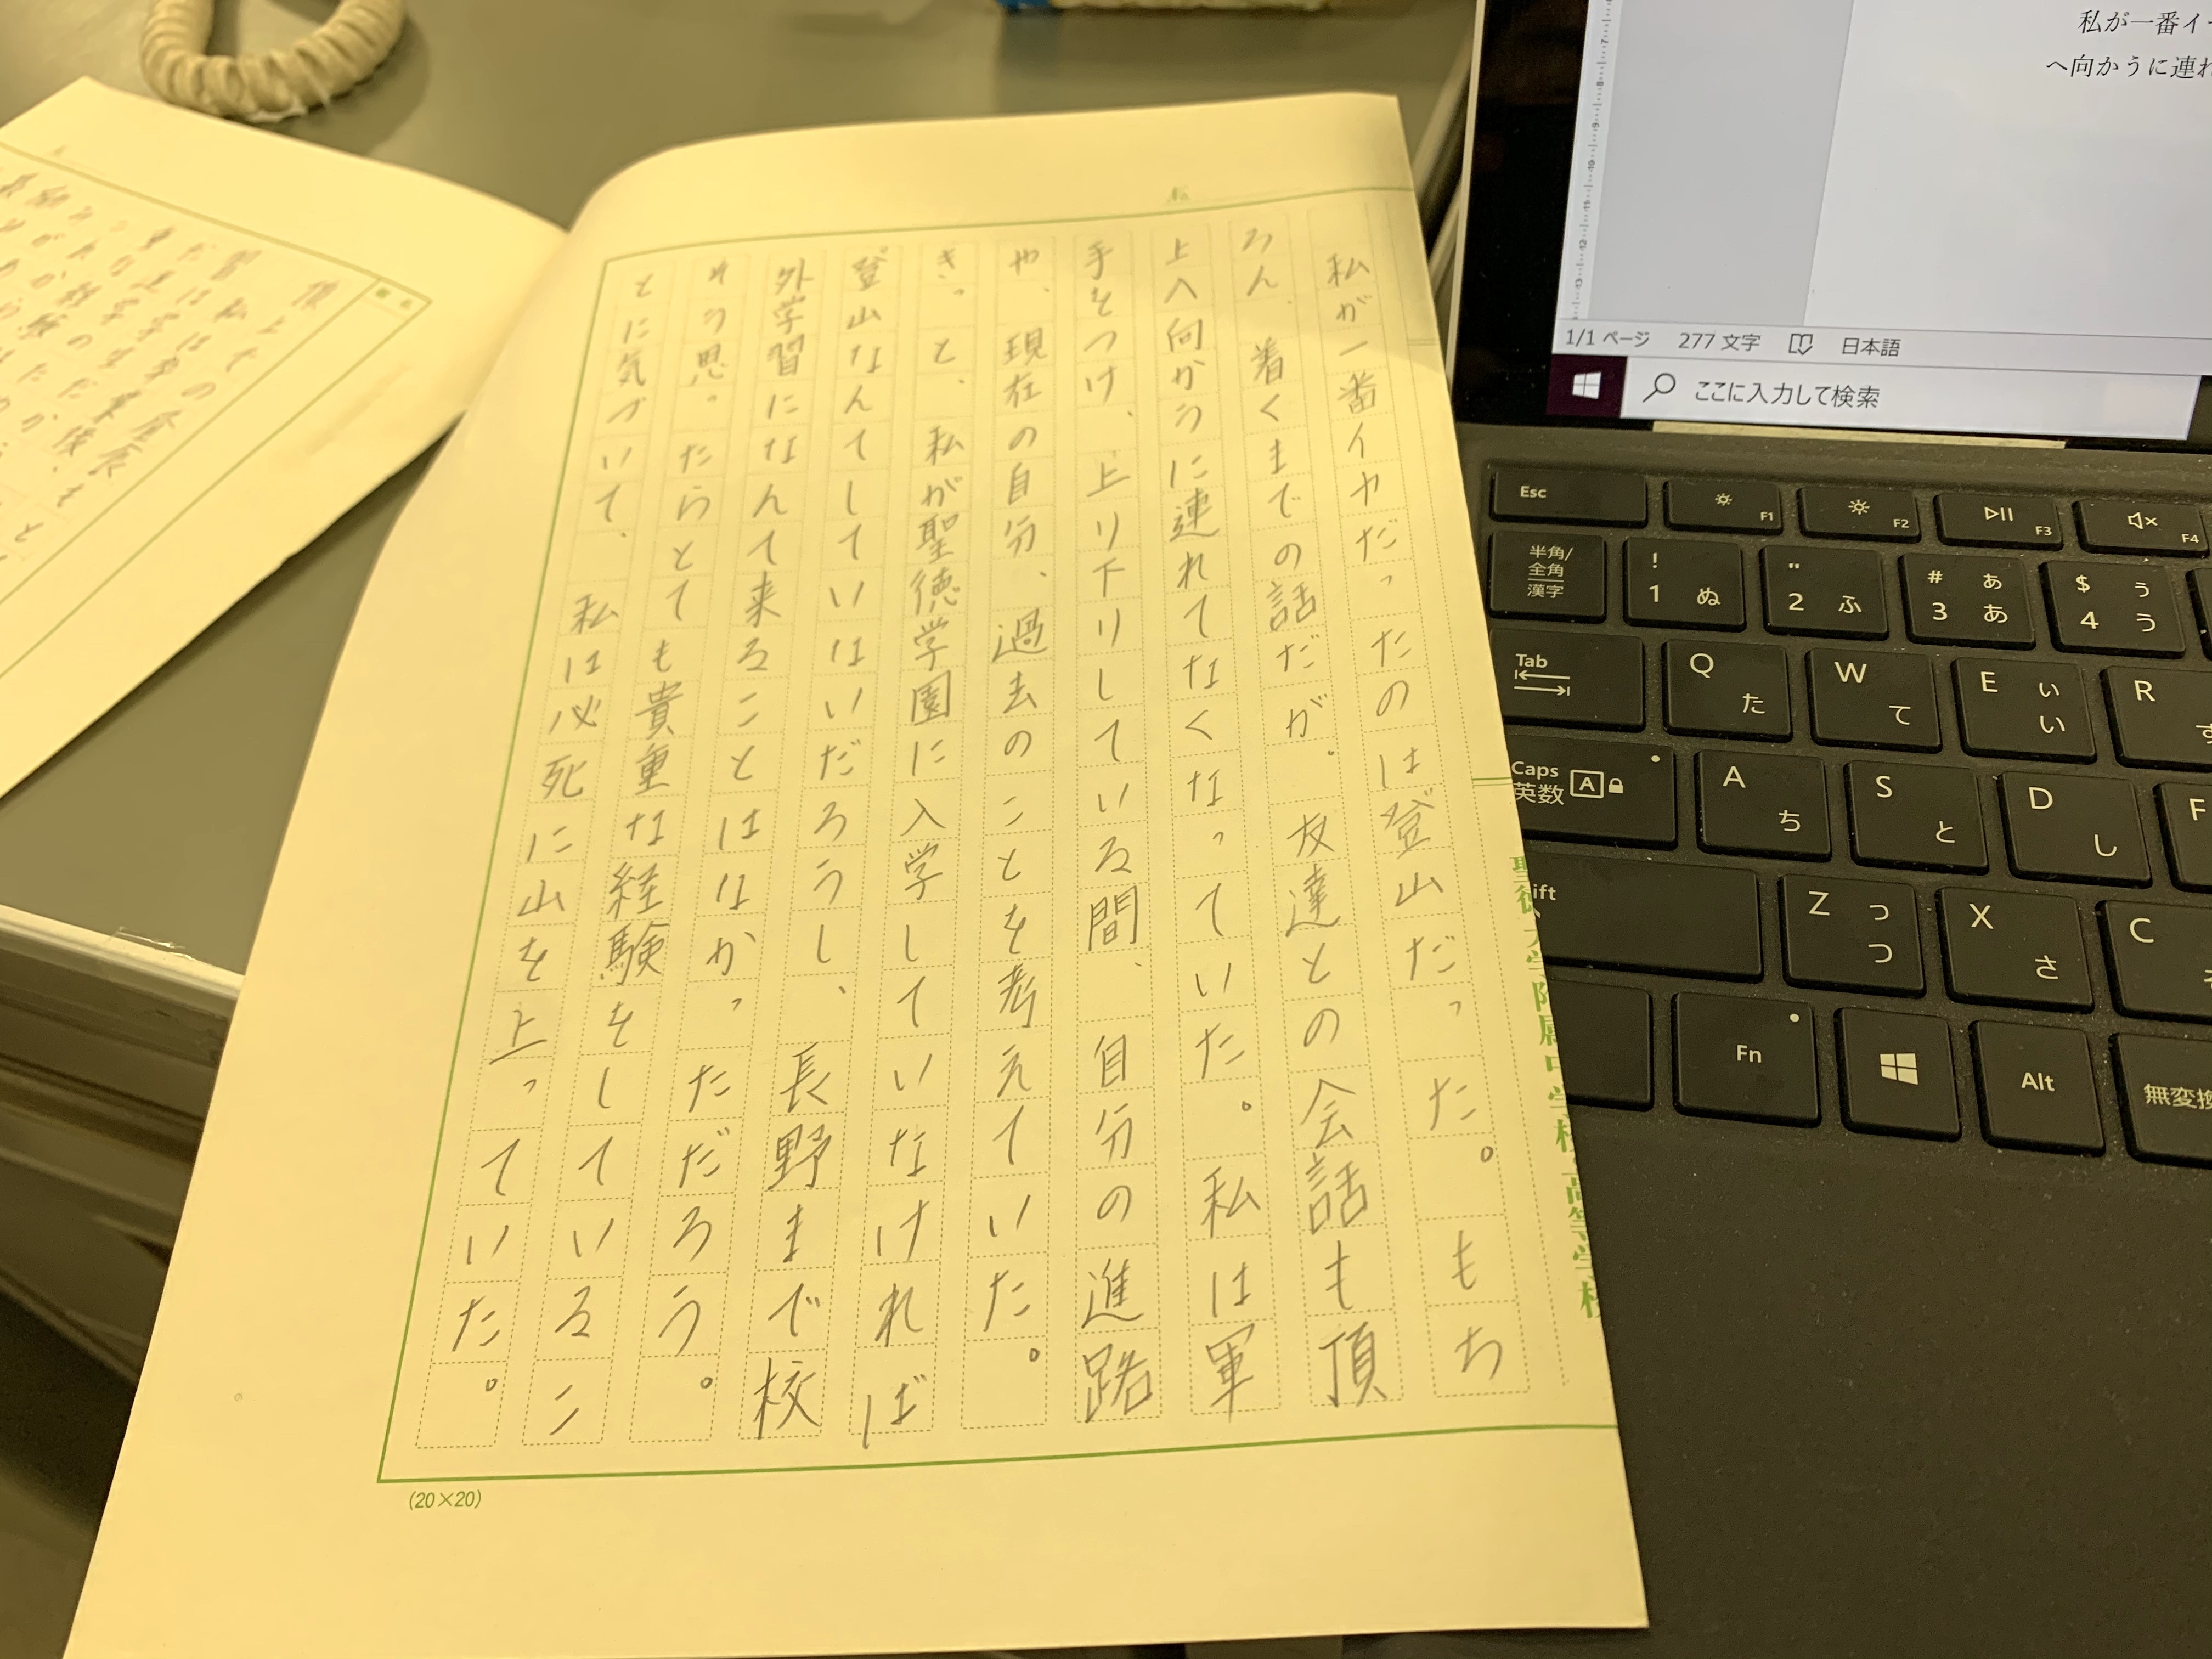 私が一番イヤだったのは登山だった。もち
ろん、着くまでの話だが。友達との会話も頂
上へ向かうに連れてなくなっていた。私は軍
手をつけ、上り下りしている間、自分の進路
や、現在の自分、過去のことを考えていた。
きっと、私が聖徳学園に入学していなければ
登山なんてしていないだろうし、長野まで校
外学習になんて来ることはなかっただろう。
そう思ったらとても貴重な経験をしているこ
とに気づいて、私は必死に山を上っていた。
(20×20)
私が一番イ
へ向かうに連れ
1/1 ページ 277 文字 日本語
ここに入力して検索
Esc F1 F2 F3 F4
半角/全角 漢字 ! 1 ぬ " 2 ふ # 3 ぁ あ $ 4 ぅ う
Tab Q た W て E ぃ い R
Caps 英数 A A ち S と D し F
ift Z っ つ X さ C
Fn Alt 無変換